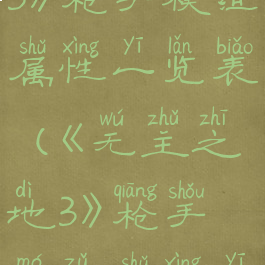 3》枪手模组
shǔ xìng yī lǎn biǎo
属性一览表
wú zhǔ zhī
(《无主之
dì qiāng shǒu
地3》枪手
mó zǔ shǔ xìng yī